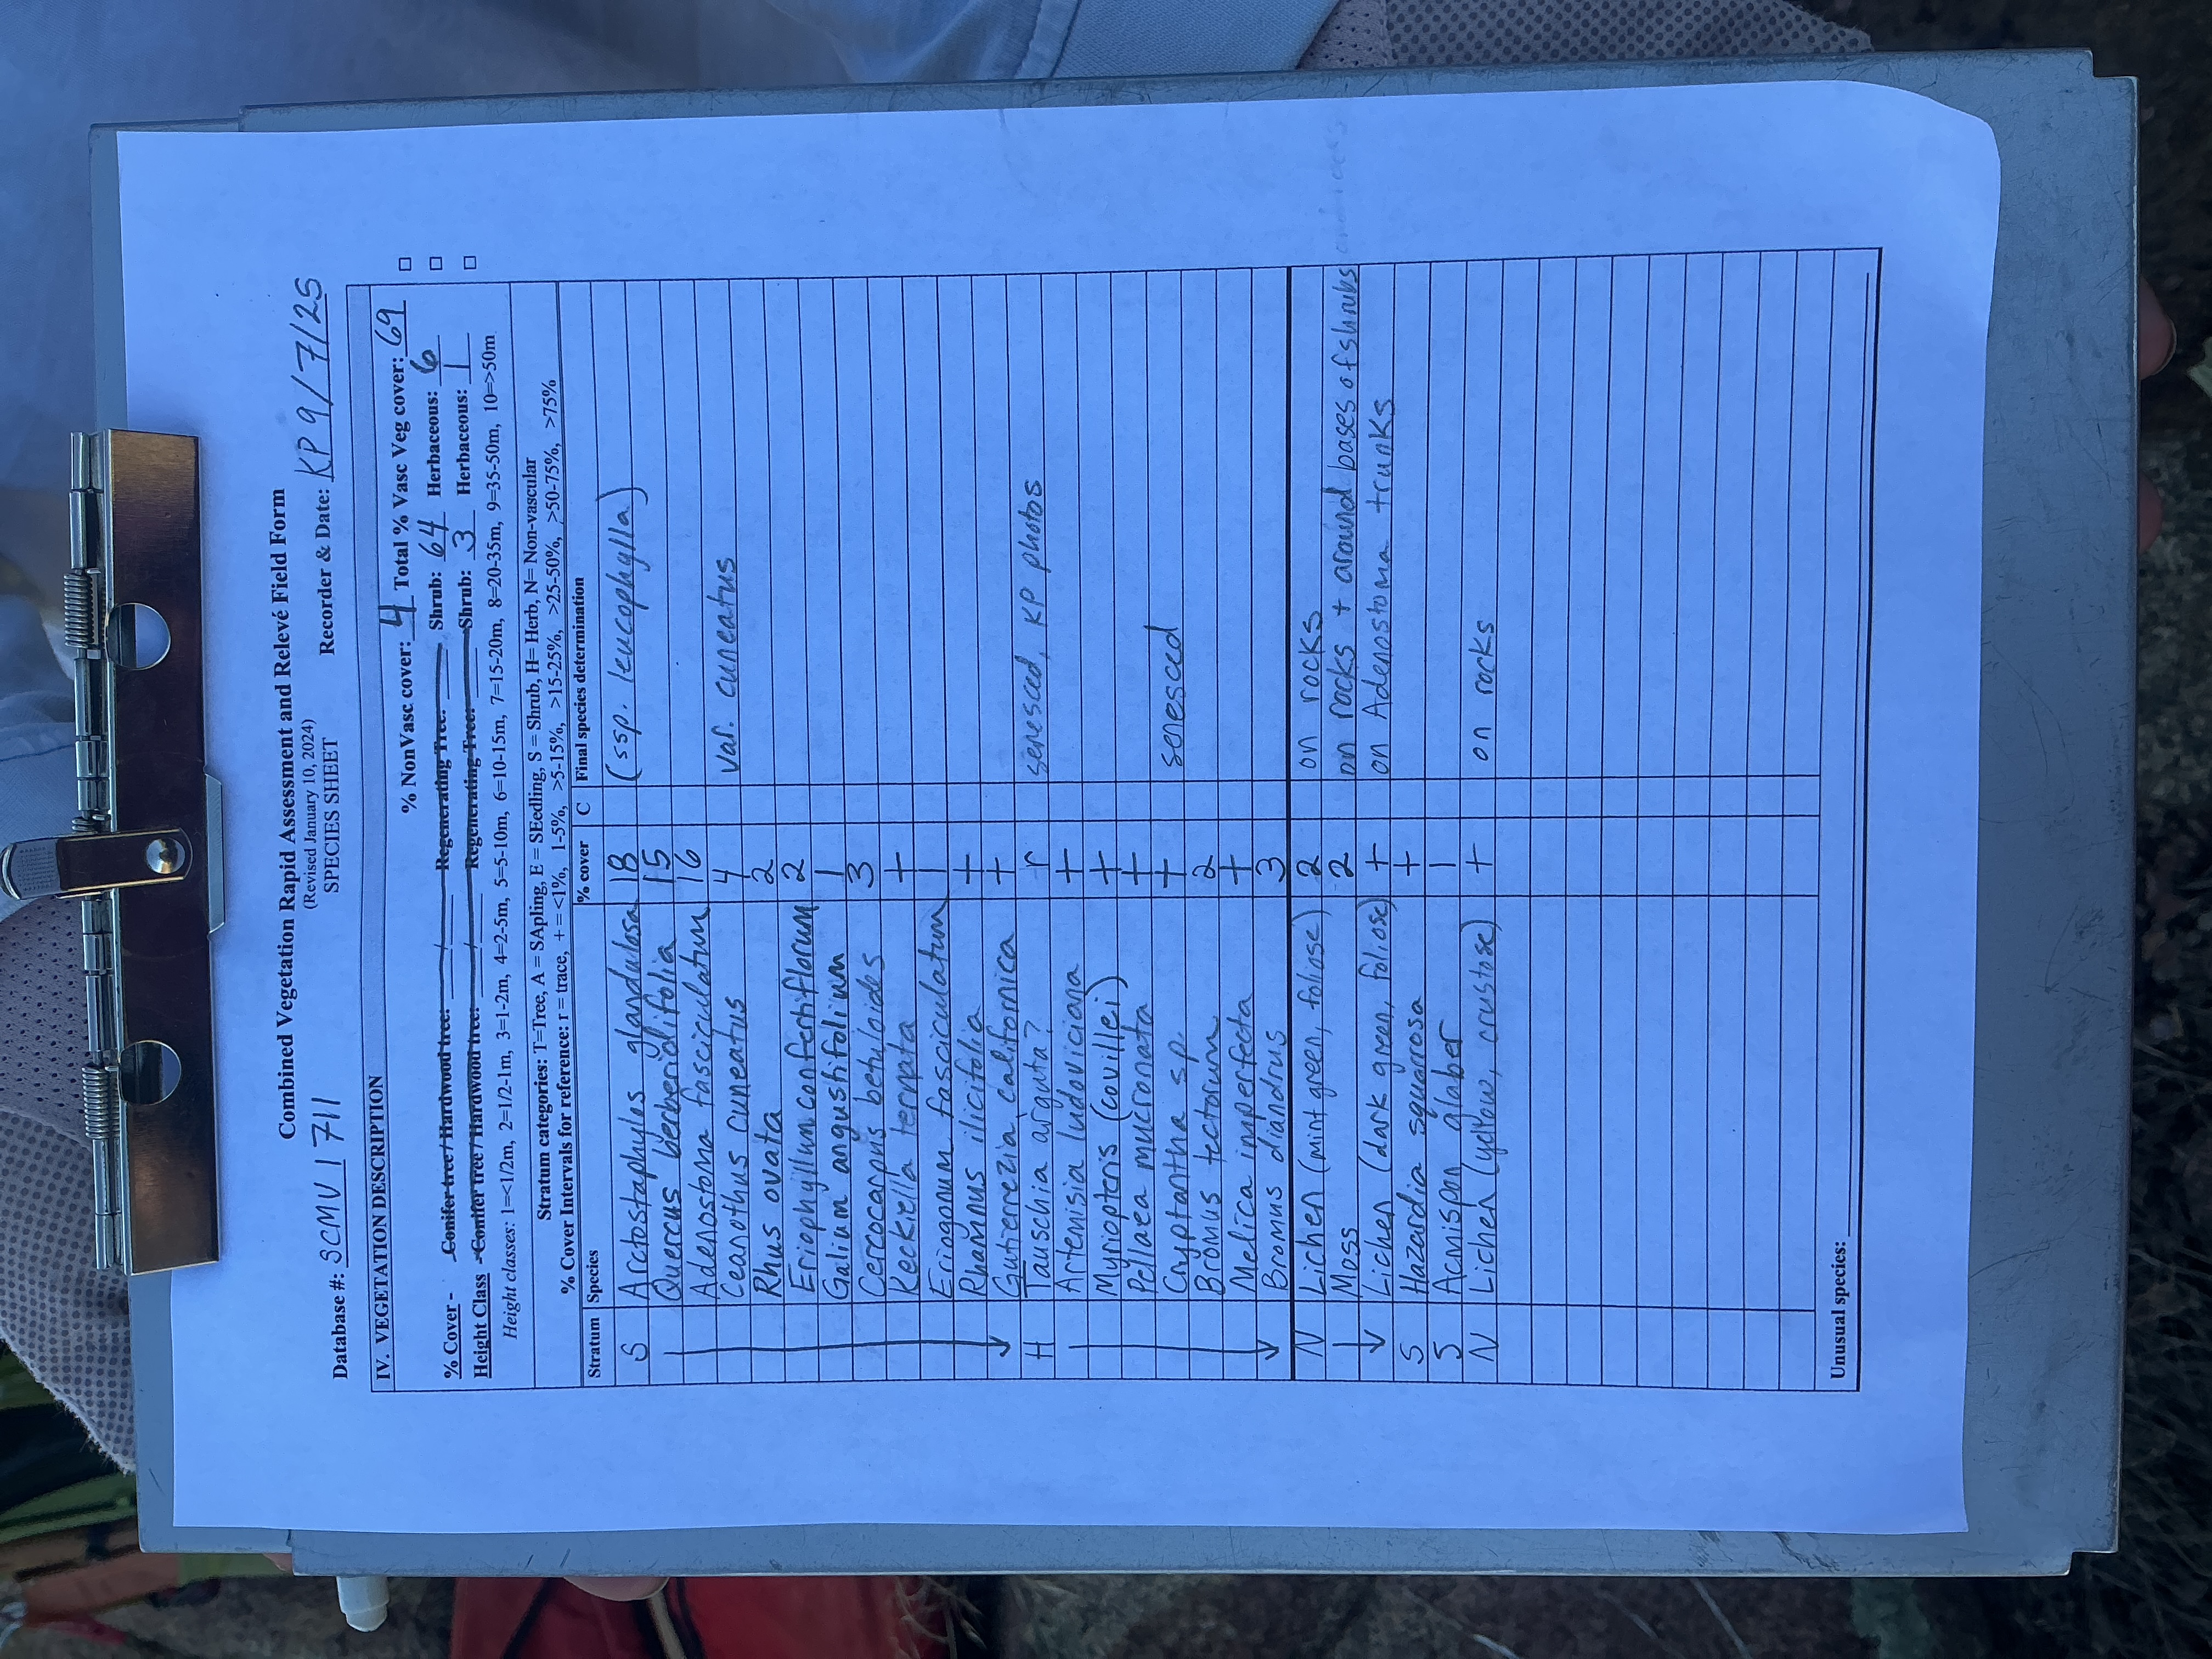 Combined Vegetation Rapid Assessment and Relevé Field Form
(Revised January 10, 2024)
Database #: SCMV1711 SPECIES SHEET Recorder & Date: KP 9/7/25
IV. VEGETATION DESCRIPTION
% NonVasc cover: 4 Total % Vasc Veg cover: 69 □
% Cover - Conifer tree / Hardwood tree: ___/___ Regenerating Tree: ___ Shrub: 64 Herbaceous: 6 □
Height Class - Conifer tree / Hardwood tree: ___/___ Regenerating Tree: ___ Shrub: 3 Herbaceous: 1 □
Height classes: 1=<1/2m, 2=1/2-1m, 3=1-2m, 4=2-5m, 5=5-10m, 6=10-15m, 7=15-20m, 8=20-35m, 9=35-50m, 10=>50m
Stratum categories: T=Tree, A = SApling, E = SEedling, S = Shrub, H= Herb, N= Non-vascular
% Cover Intervals for reference: r = trace, + = <1%, 1-5%, >5-15%, >15-25%, >25-50%, >50-75%, >75%
Stratum Species % cover C Final species determination
S Arctostaphylos glandulosa 18 (ssp. leucophylla)
Quercus berberidifolia 15
Adenostoma fasciculatum 16
Ceanothus cuneatus 4 var. cuneatus
Rhus ovata 2
Eriophyllum confertiflorum 2
Galium angustifolium 1
Cercocarpus betuloides 3
Keckiella ternata +
Eriogonum fasciculatum 1
Rhamnus ilicifolia +
Gutierrezia californica +
H Tauschia arguta? r senesced, KP photos
Artemisia ludoviciana +
Myriopteris (covillei) +
Pellaea mucronata +
Cryptantha sp. + senesced
Bromus tectorum 2
Melica imperfecta +
Bromus diandrus 3
N Lichen (mint green, foliose) 2 on rocks
Moss 2 on rocks + around bases of shrubs
Lichen (dark green, foliose) + on Adenostoma trunks
S Hazardia squarrosa +
S Acmispon glaber 1
N Lichen (yellow, crustose) + on rocks
Unusual species: